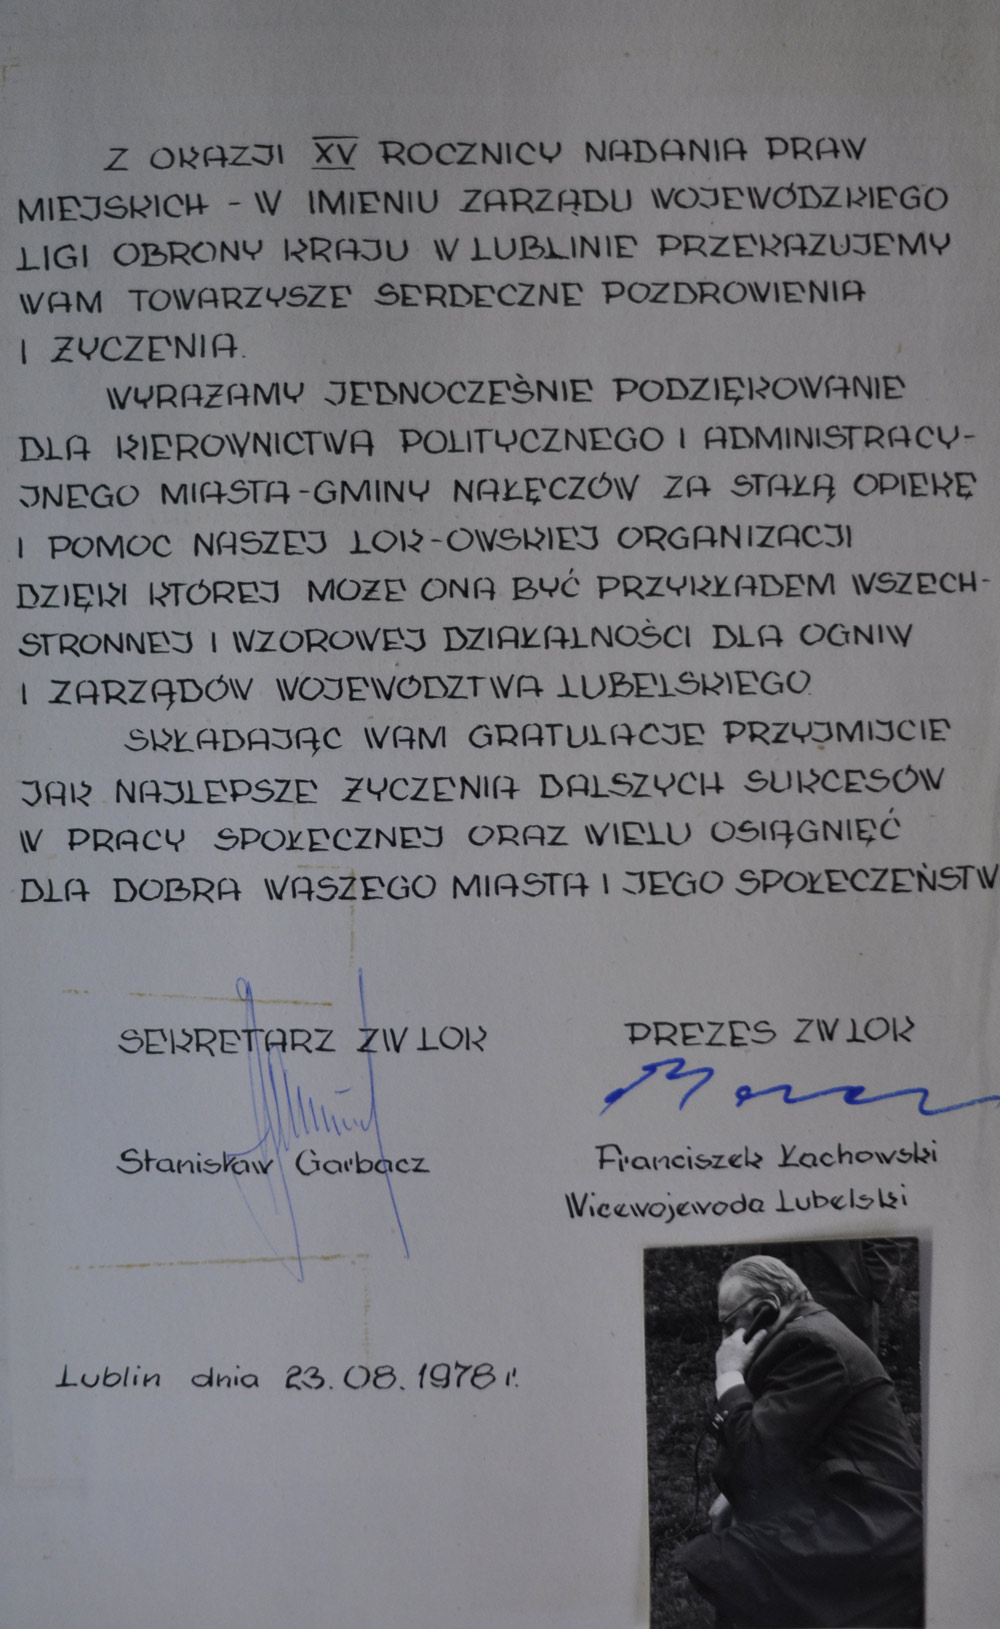 Z OKAZJI XV ROCZNICY NADANIA PRAW
MIEJSKICH - W IMIENIU ZARZĄDU WOJEWÓDZKIEGO
LIGI OBRONY KRAJU W LUBLINIE PRZEKAZUJEMY
WAM TOWARZYSZE SERDECZNE POZDROWIENIA
I ŻYCZENIA.
WYRAŻAMY JEDNOCZEŚNIE PODZIĘKOWANIE
DLA KIEROWNICTWA POLITYCZNEGO I ADMINISTRACY-
JNEGO MIASTA-GMINY NAŁĘCZÓW ZA STAŁĄ OPIEKĘ
I POMOC NASZEJ LOK-OWSKIEJ ORGANIZACJI
DZIĘKI KTÓREJ MOŻE ONA BYĆ PRZYKŁADEM WSZECH-
STRONNEJ I WZOROWEJ DZIAŁALNOŚCI DLA OGNIW
I ZARZĄDÓW WOJEWÓDZTWA LUBELSKIEGO.
SKŁADAJĄC WAM GRATULACJE PRZYJMIJCIE
JAK NAJLEPSZE ŻYCZENIA DALSZYCH SUKCESÓW
W PRACY SPOŁECZNEJ ORAZ WIELU OSIĄGNIĘĆ
DLA DOBRA WASZEGO MIASTA I JEGO SPOŁECZEŃSTW
SEKRETARZ ZW LOK PREZES ZW LOK
Stanisław Garbacz Franciszek Kachowski
Wicewojewoda Lubelski
Lublin dnia 23.08.1978 r.